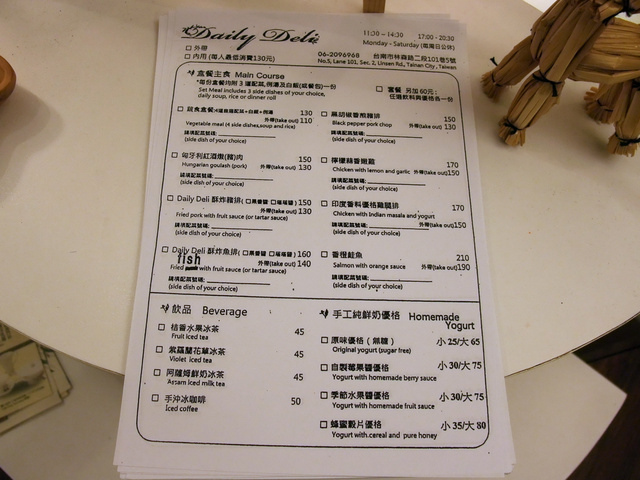 Daily Deli
11:30 - 14:30 17:00 - 20:30
Monday - Saturday (每周日公休)
□ 外帶
□ 內用 (每人最低消費130元)
06-2096968 台南市林森路二段101巷5號
No.5, Lane 101, Sec. 2, Linsen Rd., Tainan City, Taiwan
盒餐主食 Main Course
Set Meal includes 3 side dishes of your choice,
daily soup, rice or dinner roll
□ 套餐 另加 60元:
□ 蔬食盒餐 130
外帶(take out) 110
Vegetable meal (4 side dishes,soup and rice)
請填配菜號碼:
(side dish of your choice)
□ 匈牙利紅酒燉(豬)肉 150
Hungarian goulash (pork) 外帶(take out) 130
請填配菜號碼:
(side dish of your choice)
□ Daily Deli 酥炸豬排( 150
外帶(take out) 130
Fried pork with fruit sauce (or tartar sauce)
請填配菜號碼:
(side dish of your choice)
□ Daily Deli 酥炸魚排( 160
外帶(take out) 140
Fried fish with fruit sauce (or tartar sauce)
請填配菜號碼:
(side dish of your choice)
□ 黑胡椒香煎豬排 150
Black pepper pork chop 外帶(take out) 130
請填配菜號碼:
(side dish of your choice)
□ 檸檬蒜香嫩雞 170
Chicken with lemon and garlic 外帶(take out) 150
請填配菜號碼:
(side dish of your choice)
□ 印度香料優格雞腿排 170
Chicken with Indian masala and yogurt
外帶(take out) 150
請填配菜號碼:
(side dish of your choice)
□ 香橙鮭魚 210
Salmon with orange sauce 外帶(take out) 190
請填配菜號碼:
(side dish of your choice)
飲品 Beverage
□ 桔香水果冰茶 45
Fruit iced tea
□ 紫羅蘭花草冰茶 45
Violet iced tea
□ 阿薩姆鮮奶冰茶 45
Assam iced milk tea
□ 手沖冰咖啡 50
Iced coffee
手工純鮮奶優格 Homemade
Yogurt
□ 原味優格(無糖) 小 25/大 65
Original yogurt (sugar free)
□ 自製莓果醬優格 小 30/大 75
Yogurt with homemade berry sauce
□ 季節水果醬優格 小 30/大 75
Yogurt with homemade fruit sauce
□ 蜂蜜穀片優格 小 35/大 80
Yogurt with cereal and pure honey